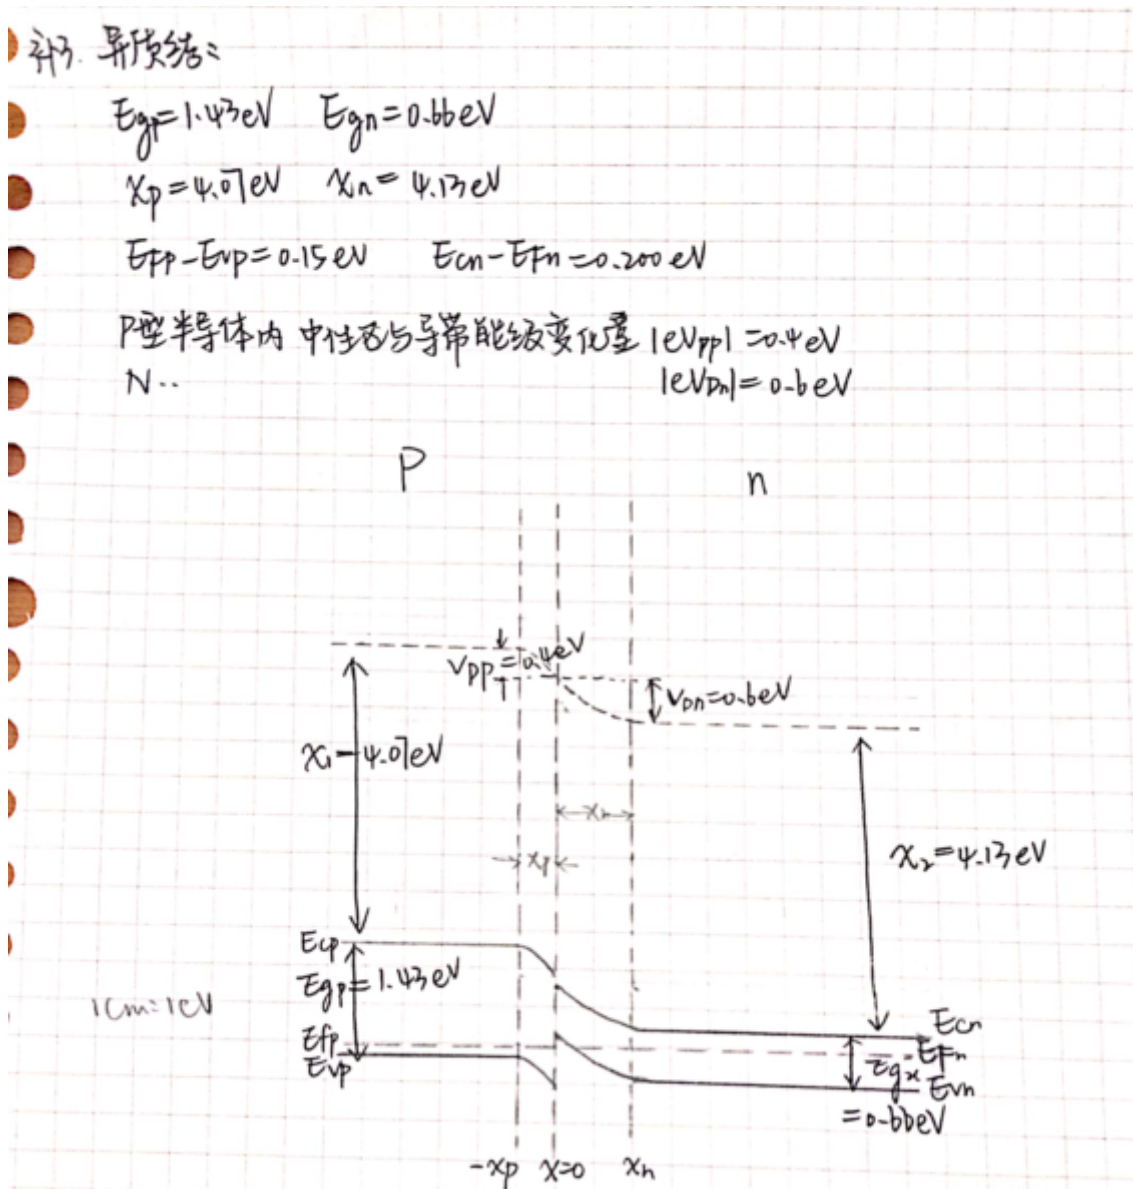 补3. 异质结:
Egp=1.43eV Egn=0.66eV
χp=4.07eV χn=4.13eV
EFp-Evp=0.15eV Ecn-EFn=0.200eV
P型半导体内 中性区与导带能级变化量 |eVDp|=0.4eV
N.. |eVDn|=0.6eV
P n
VDp=0.4eV
VDn=0.6eV
χ1=4.07eV
xn
xp
χ2=4.13eV
Ecp
Egp=1.43eV
1cm=1eV
Ecn
Efp
EFn
Evp
Egn
Evn
=0.66eV
-xp x=0 xn